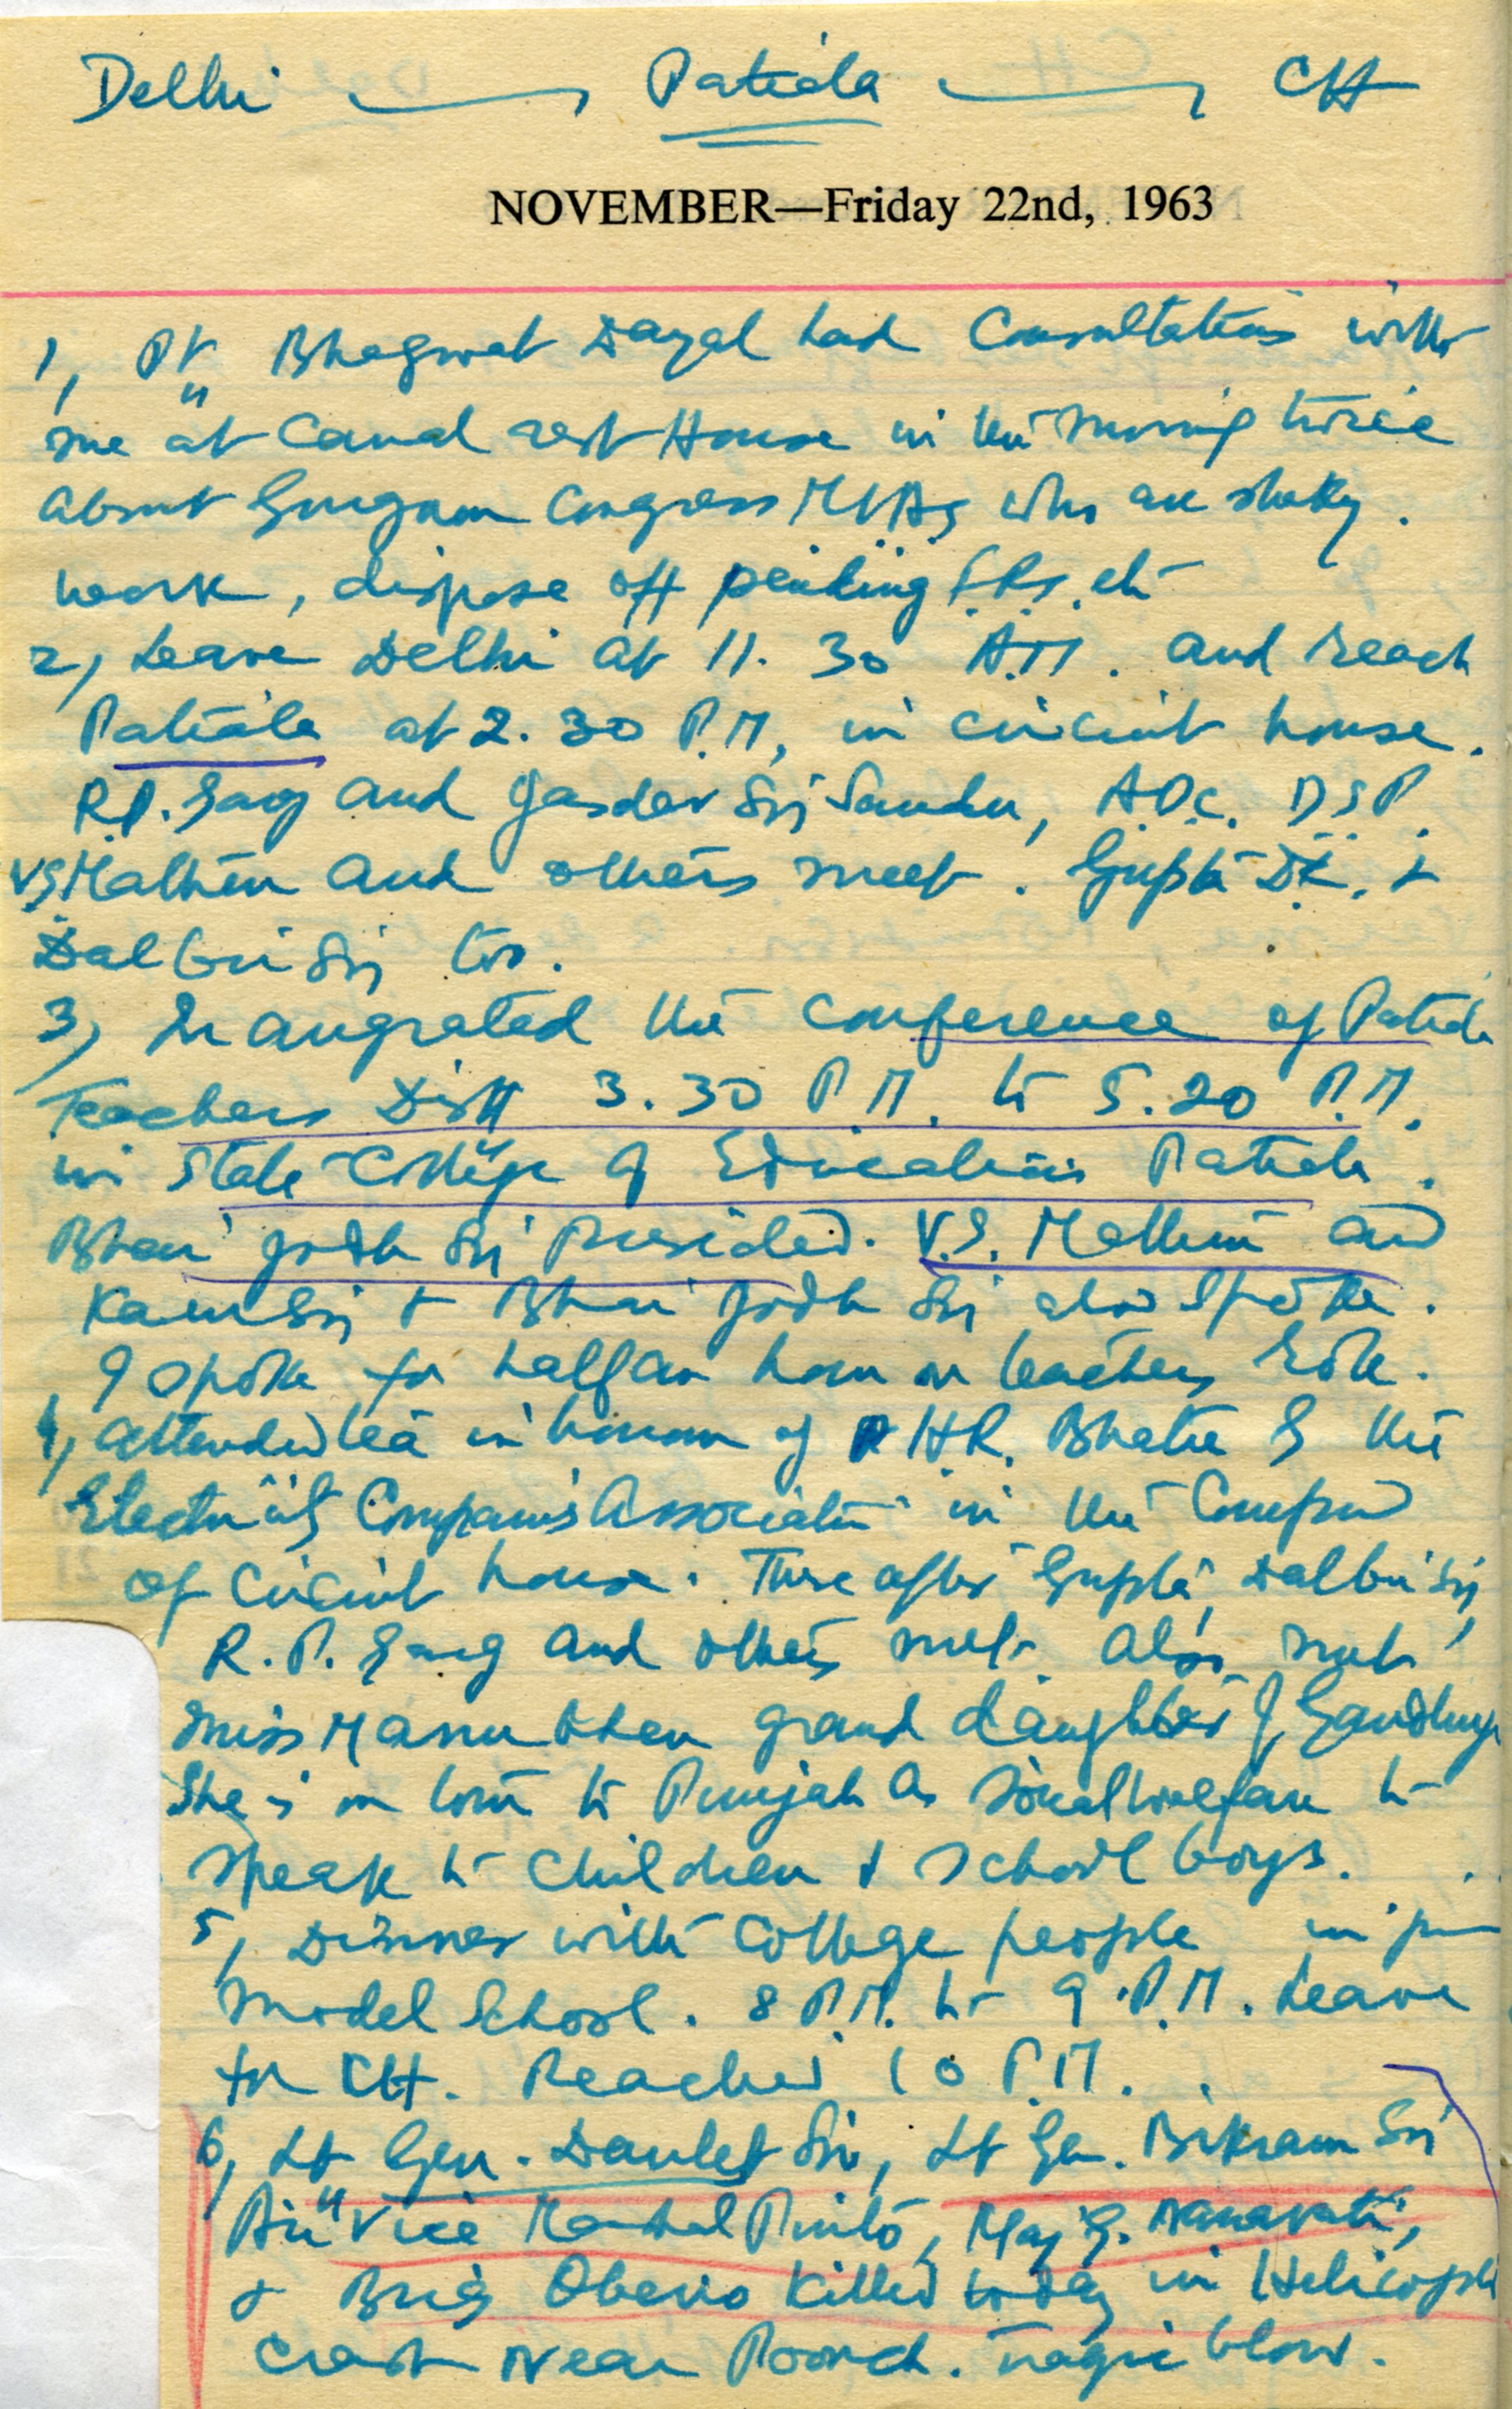 Delhi → Patiala → CH
NOVEMBER—Friday 22nd, 1963
1, Pt Bhagwat Dayal had Consultations with
me at Canal rest House in the morning twice
about Gurgaon Congress MLAs who are shaky.
work, dispose off pending etc
2, Leave Delhi at 11.30 A.M. and reach
Patiala at 2.30 P.M, in circuit house.
R.P. Garg and Jasdev Sij Sandhu, A.D.C. D.S.P.
VS Mathur and others meet. Gupta D.C. +
Dalbir Sij too.
3, Inaugrated the Conference of Patiala
Teachers Distt 3.30 P.M. to 5.20 P.M.
in State College of Education Patiala.
Bhai Jodh Sij Presided. V.S. Mathur and
Sij + Bhai Jodh Sij also spoke.
I spoke for half an hour on teachers role.
4, attended tea in honour of H.R. Bhatia by the
Electricity Companies Association in the Compound
of Circuit house. There after Gupta, Dalbir Sij,
R.P. Garg and others met. Also met
miss Manu Ben grand daughter of Gandhiji
She is on tour to Punjab as Social welfare to
speak to children + school boys.
5, Dinner with College people in
Model School. 8 P.M. to 9 P.M. Leave
for CH. Reached 10 P.M.
6, Lt Gen. Daulet Sij, Lt Gen. Bikram Sij
Air Vice Marshal Pinto, Maj G. Nanavati,
& Brig Oberio killed today in Helicopter
crash Near Poonch. Tragic blow.